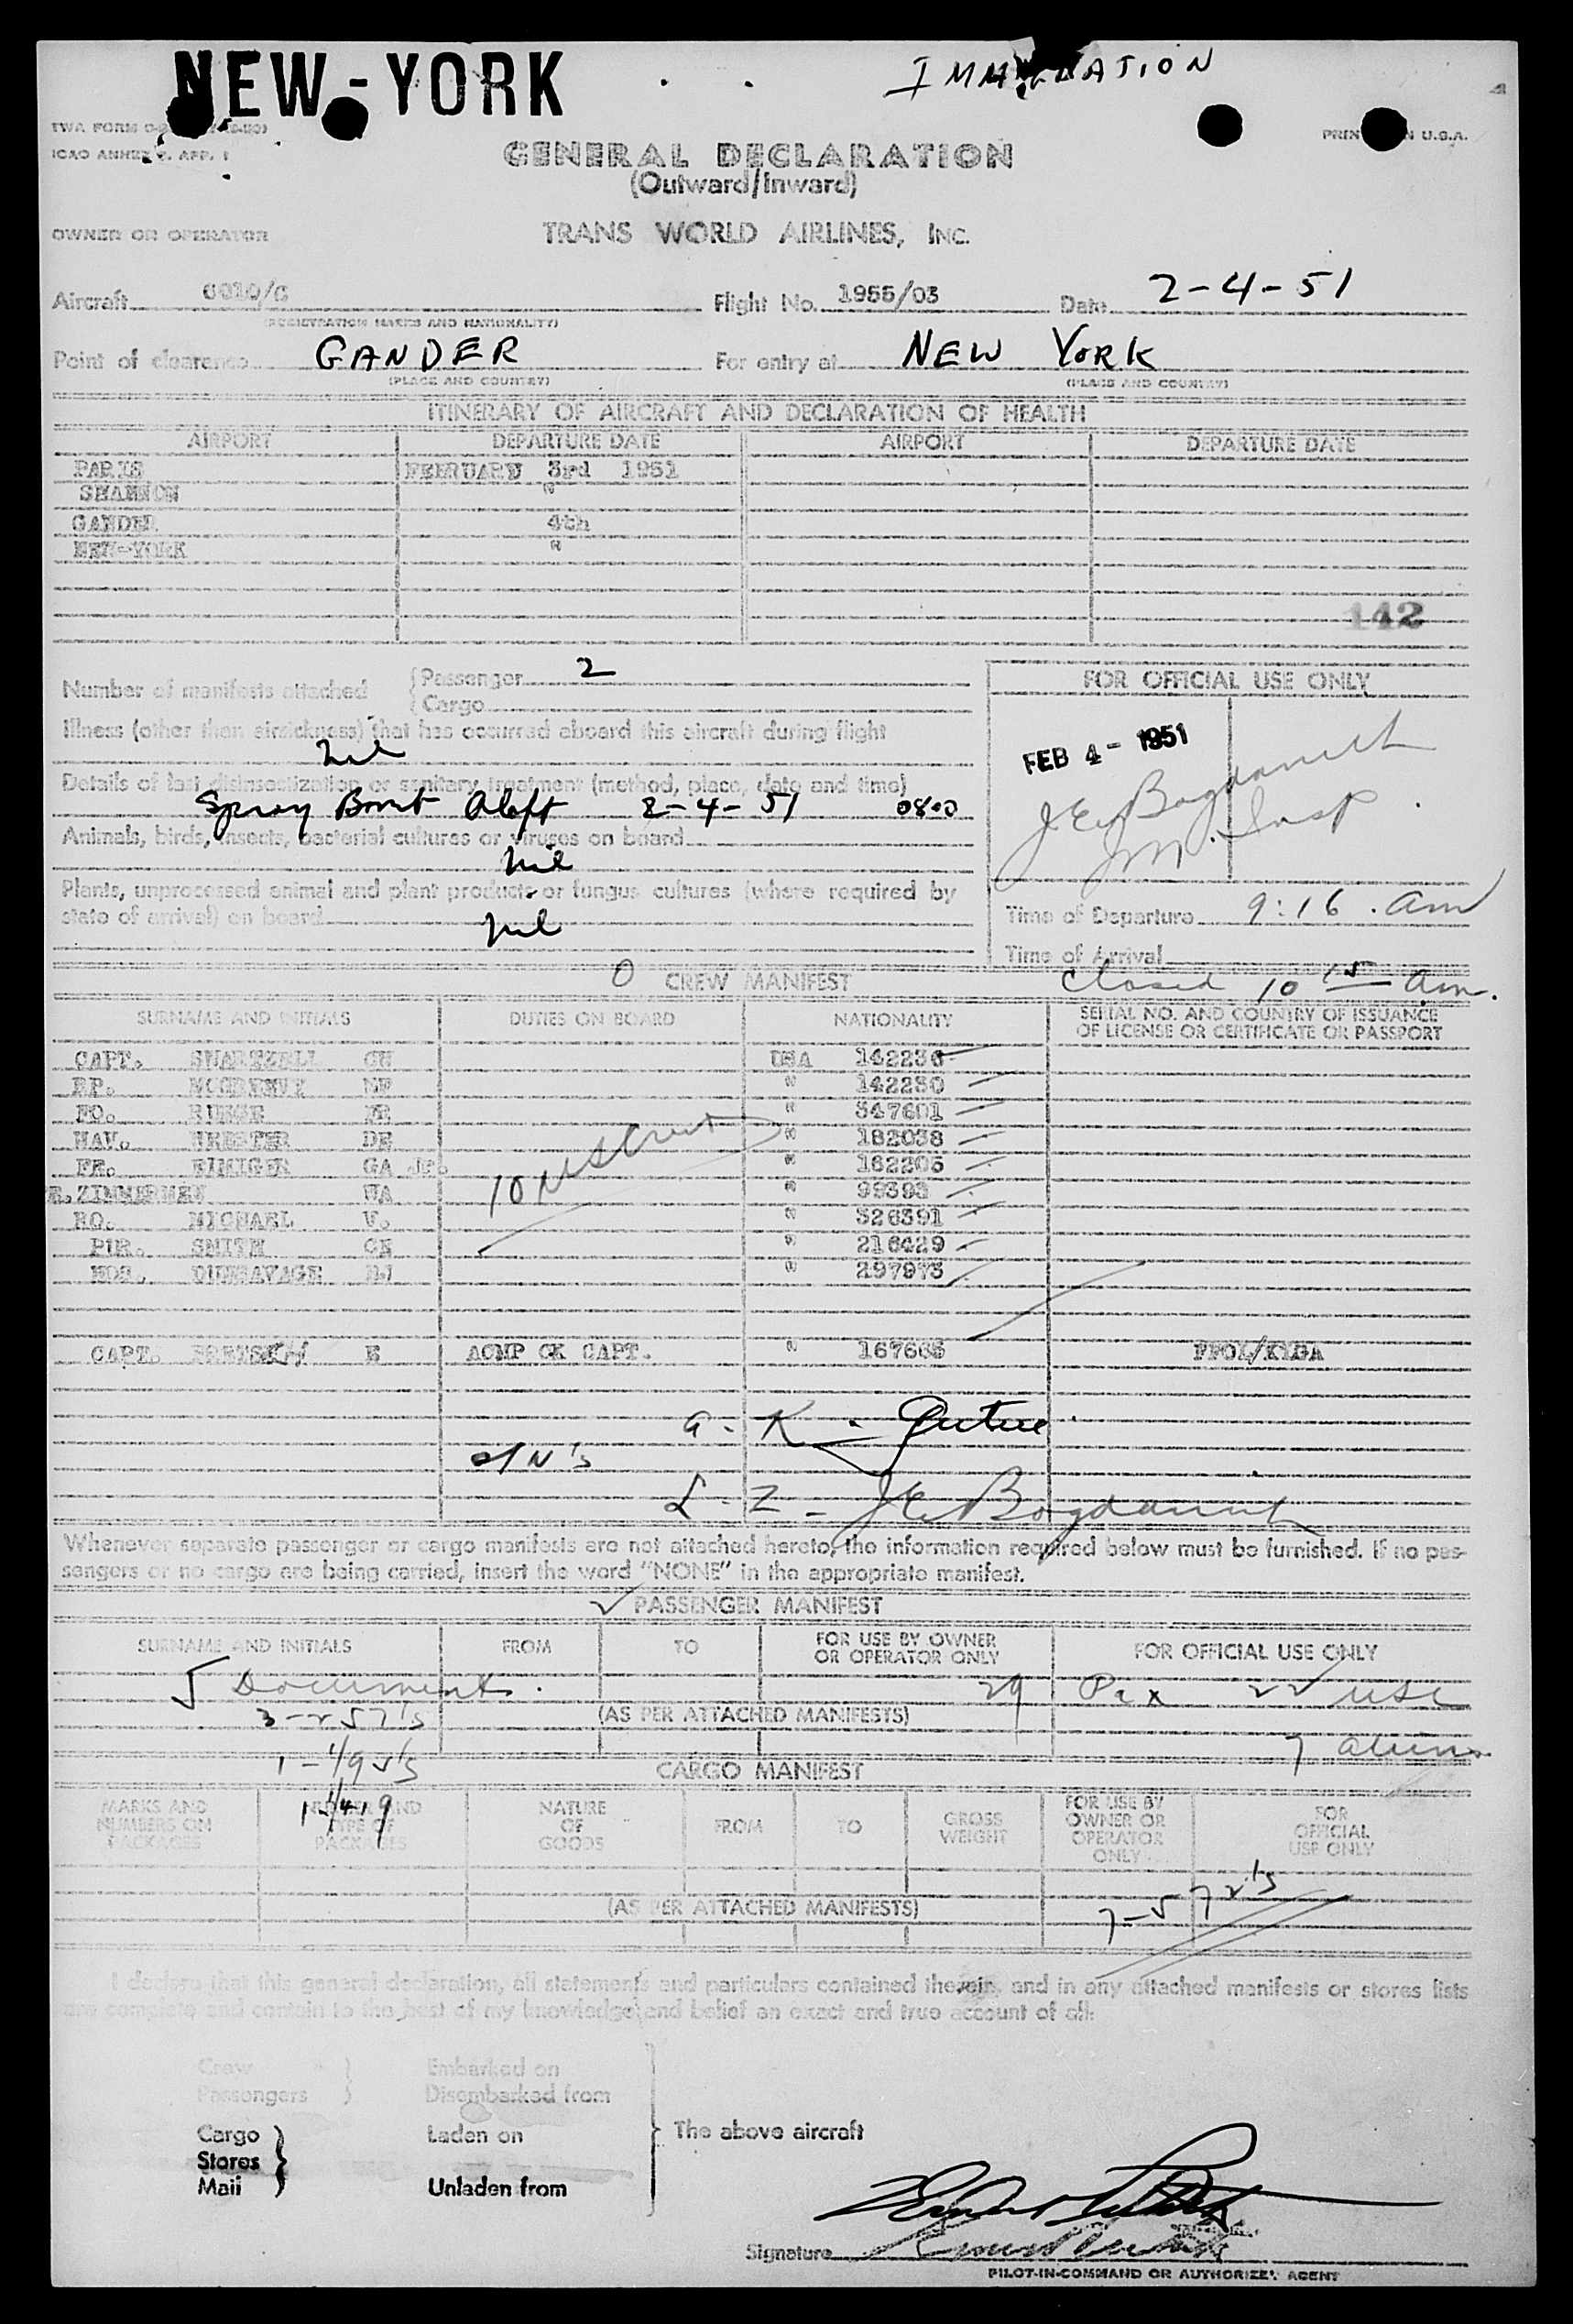 NEW-YORK
IMMIGRATION
TWA FORM
PRINTED IN U.S.A.
ICAO ANNEX 9, APP. 1
GENERAL DECLARATION
(Outward/Inward)
OWNER OR OPERATOR TRANS WORLD AIRLINES, INC.
Aircraft 6010/C Flight No. 1955/03 Date 2-4-51
(REGISTRATION MARKS AND NATIONALITY)
Point of clearance GANDER For entry at NEW YORK
(PLACE AND COUNTRY) (PLACE AND COUNTRY)
ITINERARY OF AIRCRAFT AND DECLARATION OF HEALTH
AIRPORT DEPARTURE DATE AIRPORT DEPARTURE DATE
PARIS FEBRUARY 3rd 1951
SHANNON "
GANDER 4th
NEW-YORK "
142
Number of manifests attached { Passenger 2
{ Cargo
FOR OFFICIAL USE ONLY
Illness (other than airsickness) that has occurred aboard this aircraft during flight
nil
FEB 4 - 1951
Details of last disinsectization or sanitary treatment (method, place, date and time)
Spray Bomb Aloft 2-4-51 0800
Animals, birds, insects, bacterial cultures or viruses on board
nil
Im. Insp.
Plants, unprocessed animal and plant products or fungus cultures (where required by
state of arrival) on board
nil
Time of Departure 9:16 . am
Time of Arrival
0 CREW MANIFEST
Closed 10 15 am.
SURNAME AND INITIALS DUTIES ON BOARD NATIONALITY SERIAL NO. AND COUNTRY OF ISSUANCE
OF LICENSE OR CERTIFICATE OR PASSPORT
CAPT. SWARTZELL GH USA 142236
" 142230
FO. " 347601
NAV. DE " 182038
FE. GA JR. " 162205
ZIMMERMEN WA " 99393
RO. MICHAEL V. " 326391
PUR. SMITH CE " 216429
HOS. " 297973
10 USC Crew
CAPT. E ACMP CK CAPT. " 167665
a - K -
S/N's
L - Z - J E Bogdanuch
Whenever separate passenger or cargo manifests are not attached hereto, the information required below must be furnished. If no pas-
sengers or no cargo are being carried, insert the word "NONE" in the appropriate manifest.
PASSENGER MANIFEST
SURNAME AND INITIALS FROM TO FOR USE BY OWNER
OR OPERATOR ONLY FOR OFFICIAL USE ONLY
5 Documents. 29 Pax 22 USC
3-257's (AS PER ATTACHED MANIFESTS)
7 aliens
CARGO MANIFEST
MARKS AND
NUMBERS ON
PACKAGES NUMBER AND
TYPE OF
PACKAGES NATURE
OF
GOODS FROM TO GROSS
WEIGHT FOR USE BY
OWNER OR
OPERATOR
ONLY FOR
OFFICIAL
USE ONLY
7-572's
(AS PER ATTACHED MANIFESTS)
I declare that this general declaration, all statements and particulars contained therein, and in any attached manifests or stores lists
are complete and contain to the best of my knowledge and belief an exact and true account of all:
Crew } Embarked on
Passengers } Disembarked from
Cargo Laden on The above aircraft
Stores }
Mail Unladen from
Signature
PILOT-IN-COMMAND OR AUTHORIZED AGENT